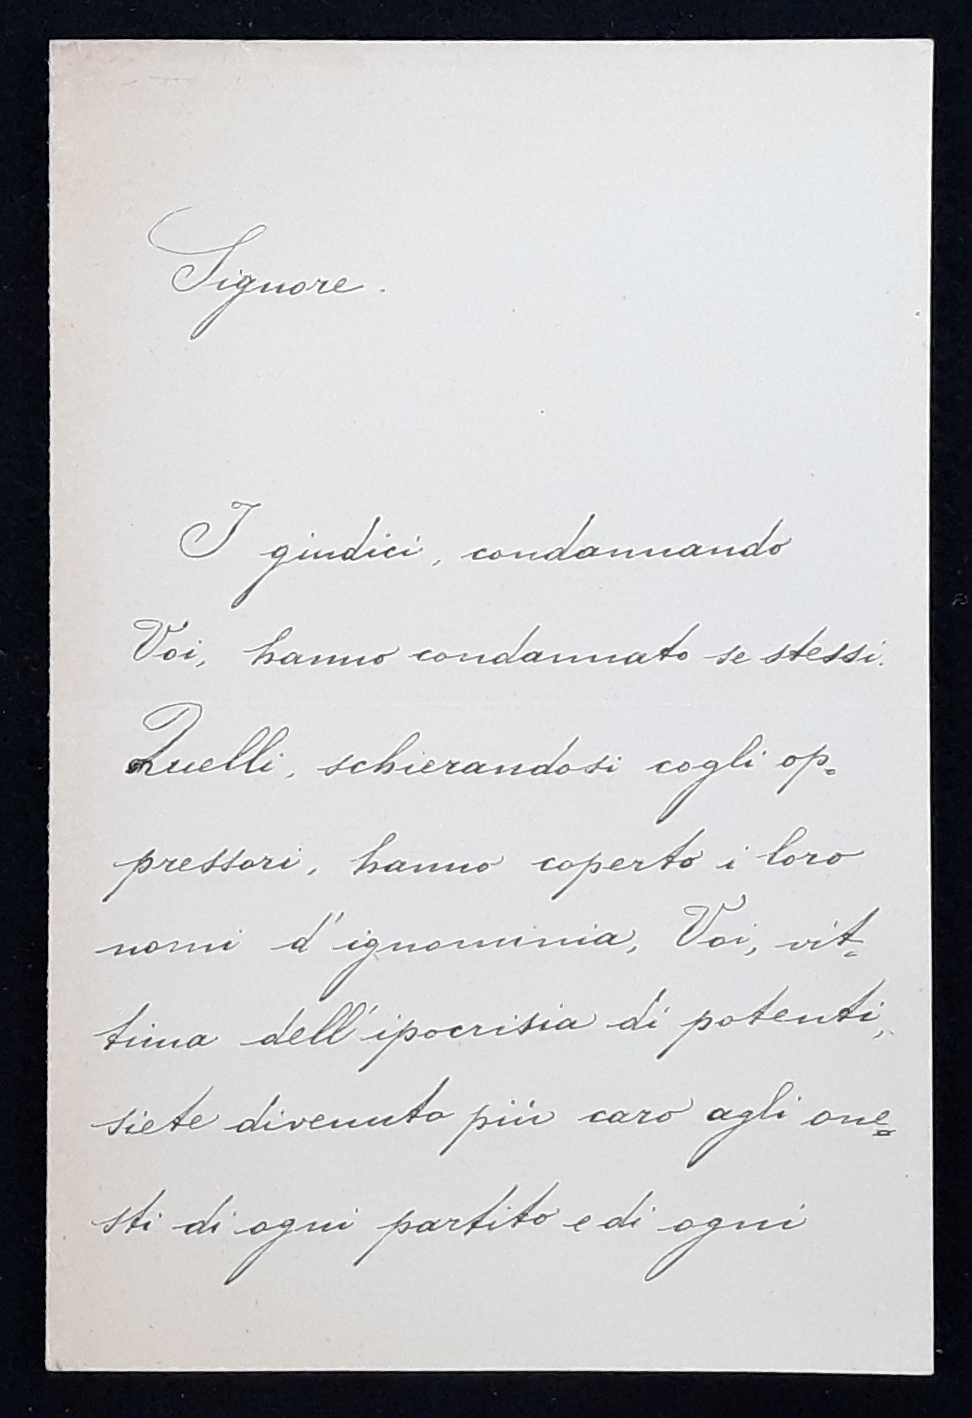 Signore.
I giudici, condannando
Voi, hanno condannato se stessi.
Quelli, schierandosi cogli op=
pressori, hanno coperto i loro
nomi d'ignominia, Voi, vit=
tima dell'ipocrisia di potenti,
siete divenuto più caro agli one=
sti di ogni partito e di ogni